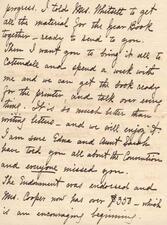 progress. I told Mrs. Whitsett to get
all the material for the Year Book
together - ready to send to you.
Then I want you to bring it all to
Cottondale and spend a week with
me and we can get the book ready
for the printer and talk over using
time. It is so much better than
writing letters - and we will enjoy it.
I am sure Edna and Aunt Sarah
have told you all about the Convention
and everyone missed you.
The Endowment was endorsed and
Mrs. Cooper now has over $350 - which
is an encouraging beginning.